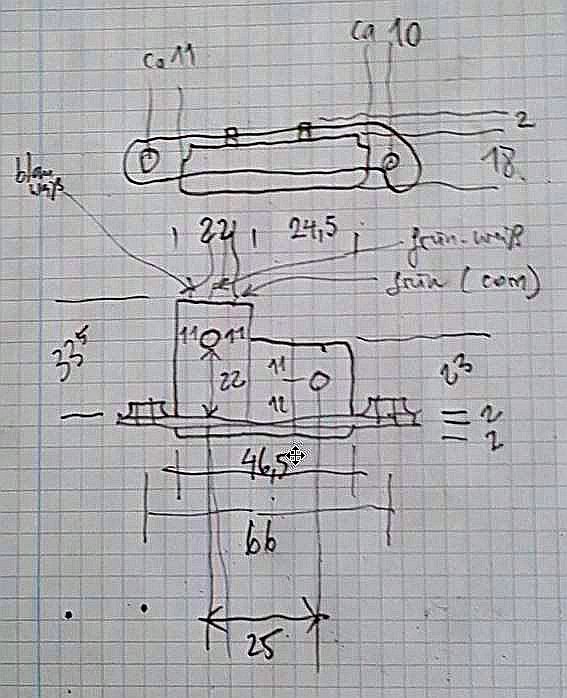 ca 10
ca 11
2
18
blau
weiß
22 24,5
grün-weiß
grün (com)
11 11
33⁵
22
11
12
23
2
2
46,5
66
25